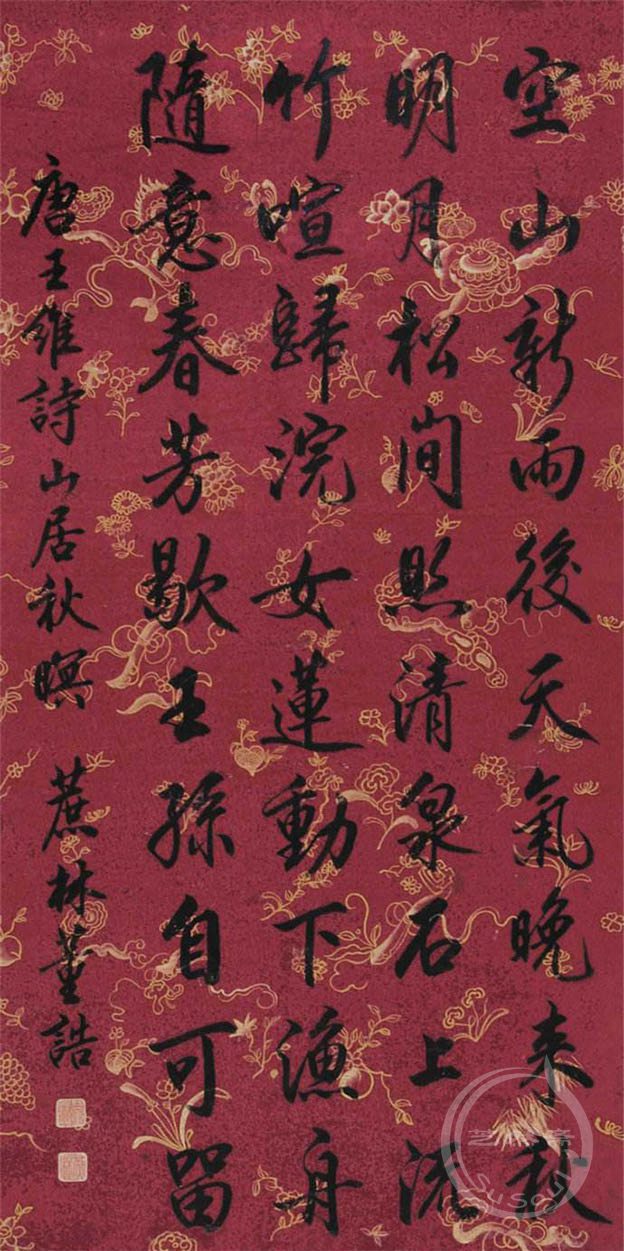 空山新雨後天氣晚来秋
明月松間照清泉石上流
竹喧歸浣女蓮動下漁舟
隨意春芳歇王孫自可留
唐王維詩山居秋暝 蔗林董誥